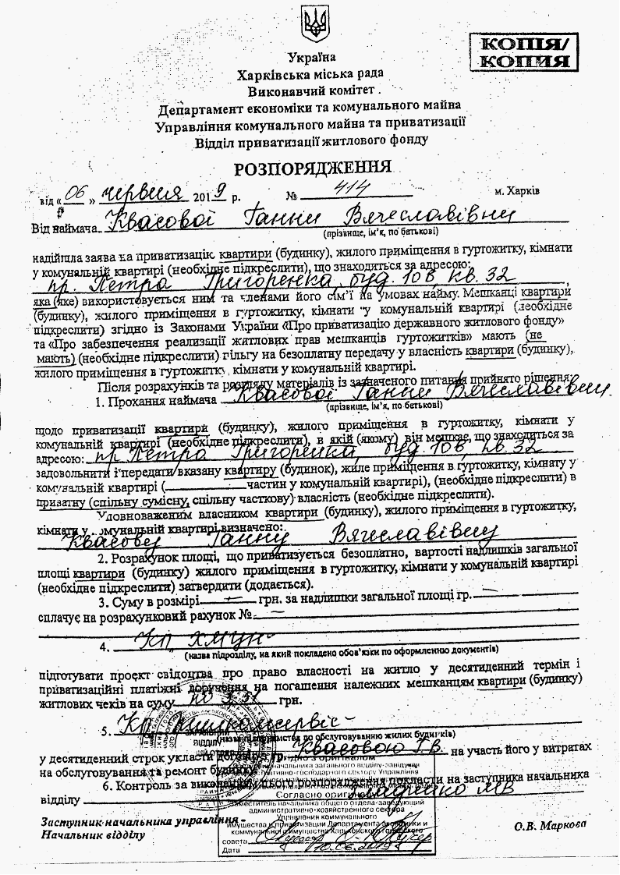 КОПІЯ/
КОПИЯ
Україна
Харківська міська рада
Виконавчий комітет .
Департамент економіки та комунального майна
Управління комунального майна та приватизації
Відділ приватизації житлового фонду
РОЗПОРЯДЖЕННЯ
від « 06 » червня 2019 р. № 414 м. Харків
Від наймача Квасової Ганни Вячеславівни
(прізвище, ім'я, по батькові)
надійшла заява на приватизацію квартири (будинку), жилого приміщення в гуртожитку, кімнати
у комунальній квартирі (необхідне підкреслити), що знаходиться за адресою:
пр. Петра Григоренка, буд. 10в, кв. 32,
яка (яке) використовується ним та членами його сім'ї на умовах найму. Мешканці квартири
(будинку), жилого приміщення в гуртожитку, кімнати у комунальній квартирі (необхідне
підкреслити) згідно із Законами України «Про приватизацію державного житлового фонду»
та «Про забезпечення реалізації житлових прав мешканців гуртожитків» мають (не
мають) (необхідне підкреслити) пільгу на безоплатну передачу у власність квартири (будинку),
жилого приміщення в гуртожитку, кімнати у комунальній квартирі.
Після розрахунків та розгляду матеріалів із зазначеного питання прийнято рішення:
1. Прохання наймача Квасової Ганни Вячеславівни
(прізвище, ім'я, по батькові)
щодо приватизації квартири (будинку), жилого приміщення в гуртожитку, кімнати у
комунальній квартирі (необхідне підкреслити), в якій (якому) він мешкає, що знаходиться за
адресою: пр. Петра Григоренка, буд. 10в, кв. 32
задовольнити і передати вказану квартиру (будинок), жиле приміщення в гуртожитку, кімнату у
комунальній квартирі (частин у комунальній квартирі), (необхідне підкреслити) в
приватну (спільну сумісну, спільну часткову) власність (необхідне підкреслити).
Уповноваженим власником квартири (будинку), жилого приміщення в гуртожитку,
кімнати у комунальній квартирі визначено:
Квасову Ганну Вячеславівну
2. Розрахунок площі, що приватизується безоплатно, вартості надлишків загальної
площі квартири (будинку) жилого приміщення в гуртожитку, кімнати у комунальній квартирі
(необхідне підкреслити) затвердити (додається).
3. Суму в розмірі — грн. за надлишки загальної площі гр.
сплачує на розрахунковий рахунок №
4. КП ХМЦН
(назва підрозділу, на який покладено обов'язки по оформленню документів)
підготувати проєкт свідоцтва про право власності на житло у десятиденний термін і
приватизаційні платіжні доручення на погашення належних мешканцям квартири (будинку)
житлових чеків на суму грн.
5. КП Жилкомсервіс
по обслуговуванню жилих будинків)
у десятиденний строк укласти договір з гр. Квасовою Г.В. на участь його у витратах
на обслуговування та ремонт будинку
6. Контроль за виконанням цього розпорядження покласти на заступника начальника
відділу
Согласно
Заместитель начальника общего отдела-заведующий
административно-хозяйственного сектора
Управления коммунального
имущества и приватизации Департамента экономики и
коммунального имущества Харьковского городского
совета
Дата
Заступник начальника управління -
Начальник відділу О.В. Маркова